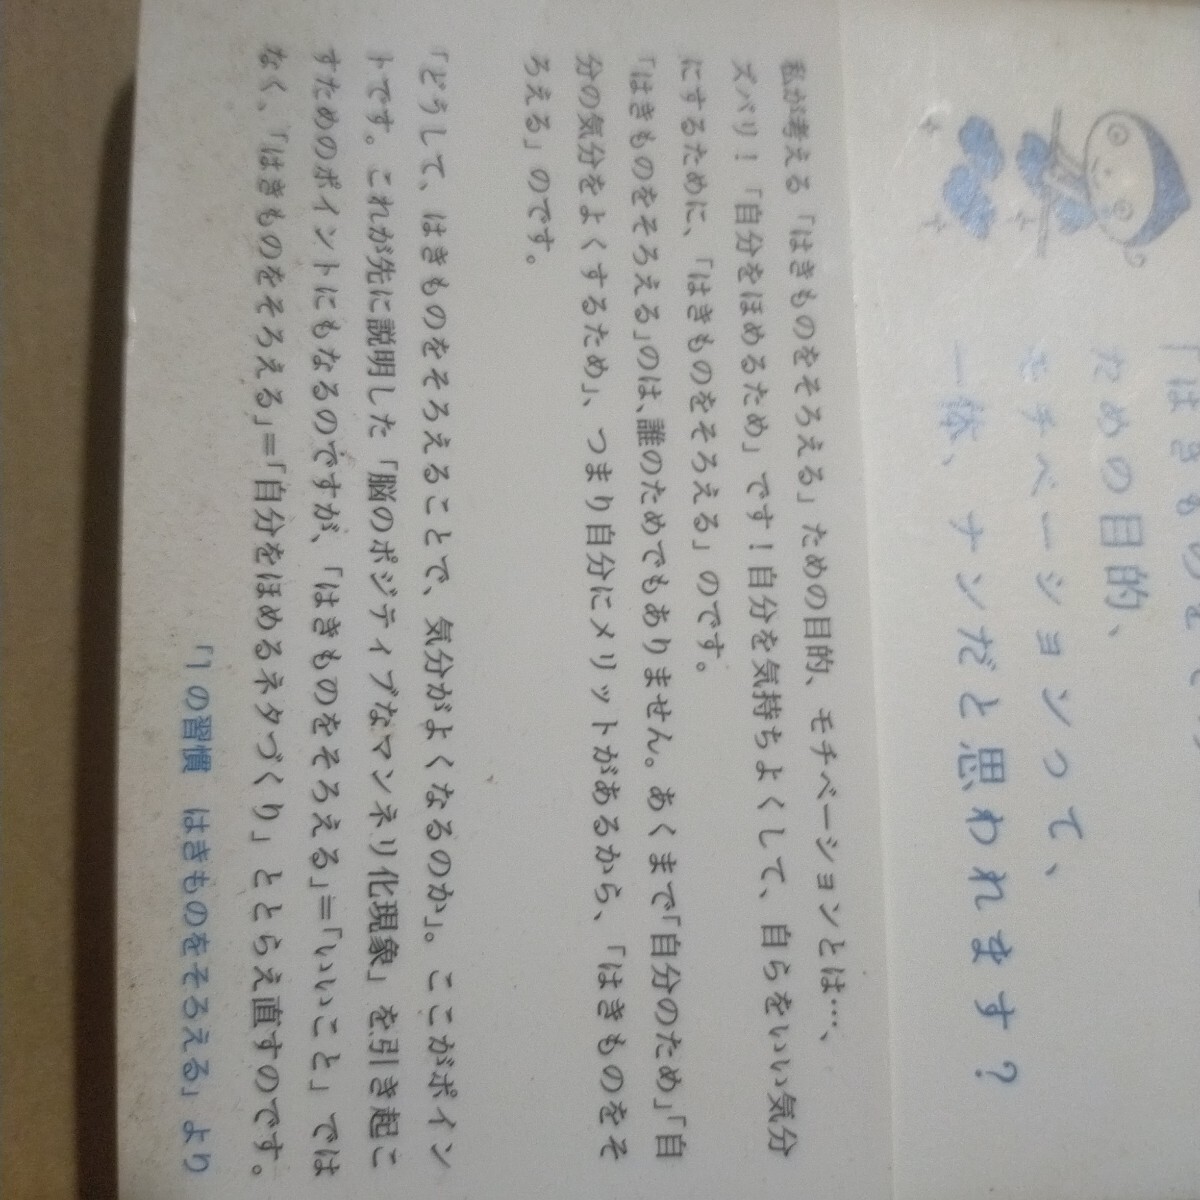 「はきものをそろ
ための目的、
モチベーションって、
一体、ナンだと思われます？
私が考える「はきものをそろえる」ための目的、モチベーションとは…、
ズバリ！「自分をほめるため」です！自分を気持ちよくして、自らをいい気分
にするために、「はきものをそろえる」のです。
「はきものをそろえる」のは、誰のためでもありません。あくまで「自分のため」「自
分の気分をよくするため」、つまり自分にメリットがあるから、「はきものをそ
ろえる」のです。
「どうして、はきものをそろえることで、気分がよくなるのか」。ここがポイン
トです。これが先に説明した「脳のポジティブなマンネリ化現象」を引き起こ
すためのポイントにもなるのですが、「はきものをそろえる」＝「いいこと」では
なく、「はきものをそろえる」＝「自分をほめるネタづくり」ととらえ直すのです。
「1の習慣　はきものをそろえる」より